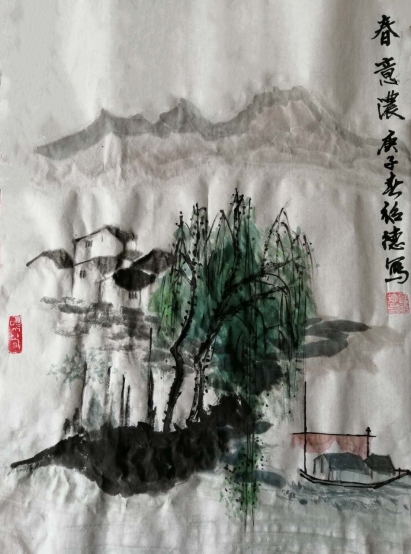 春意濃庚子春裕德寫